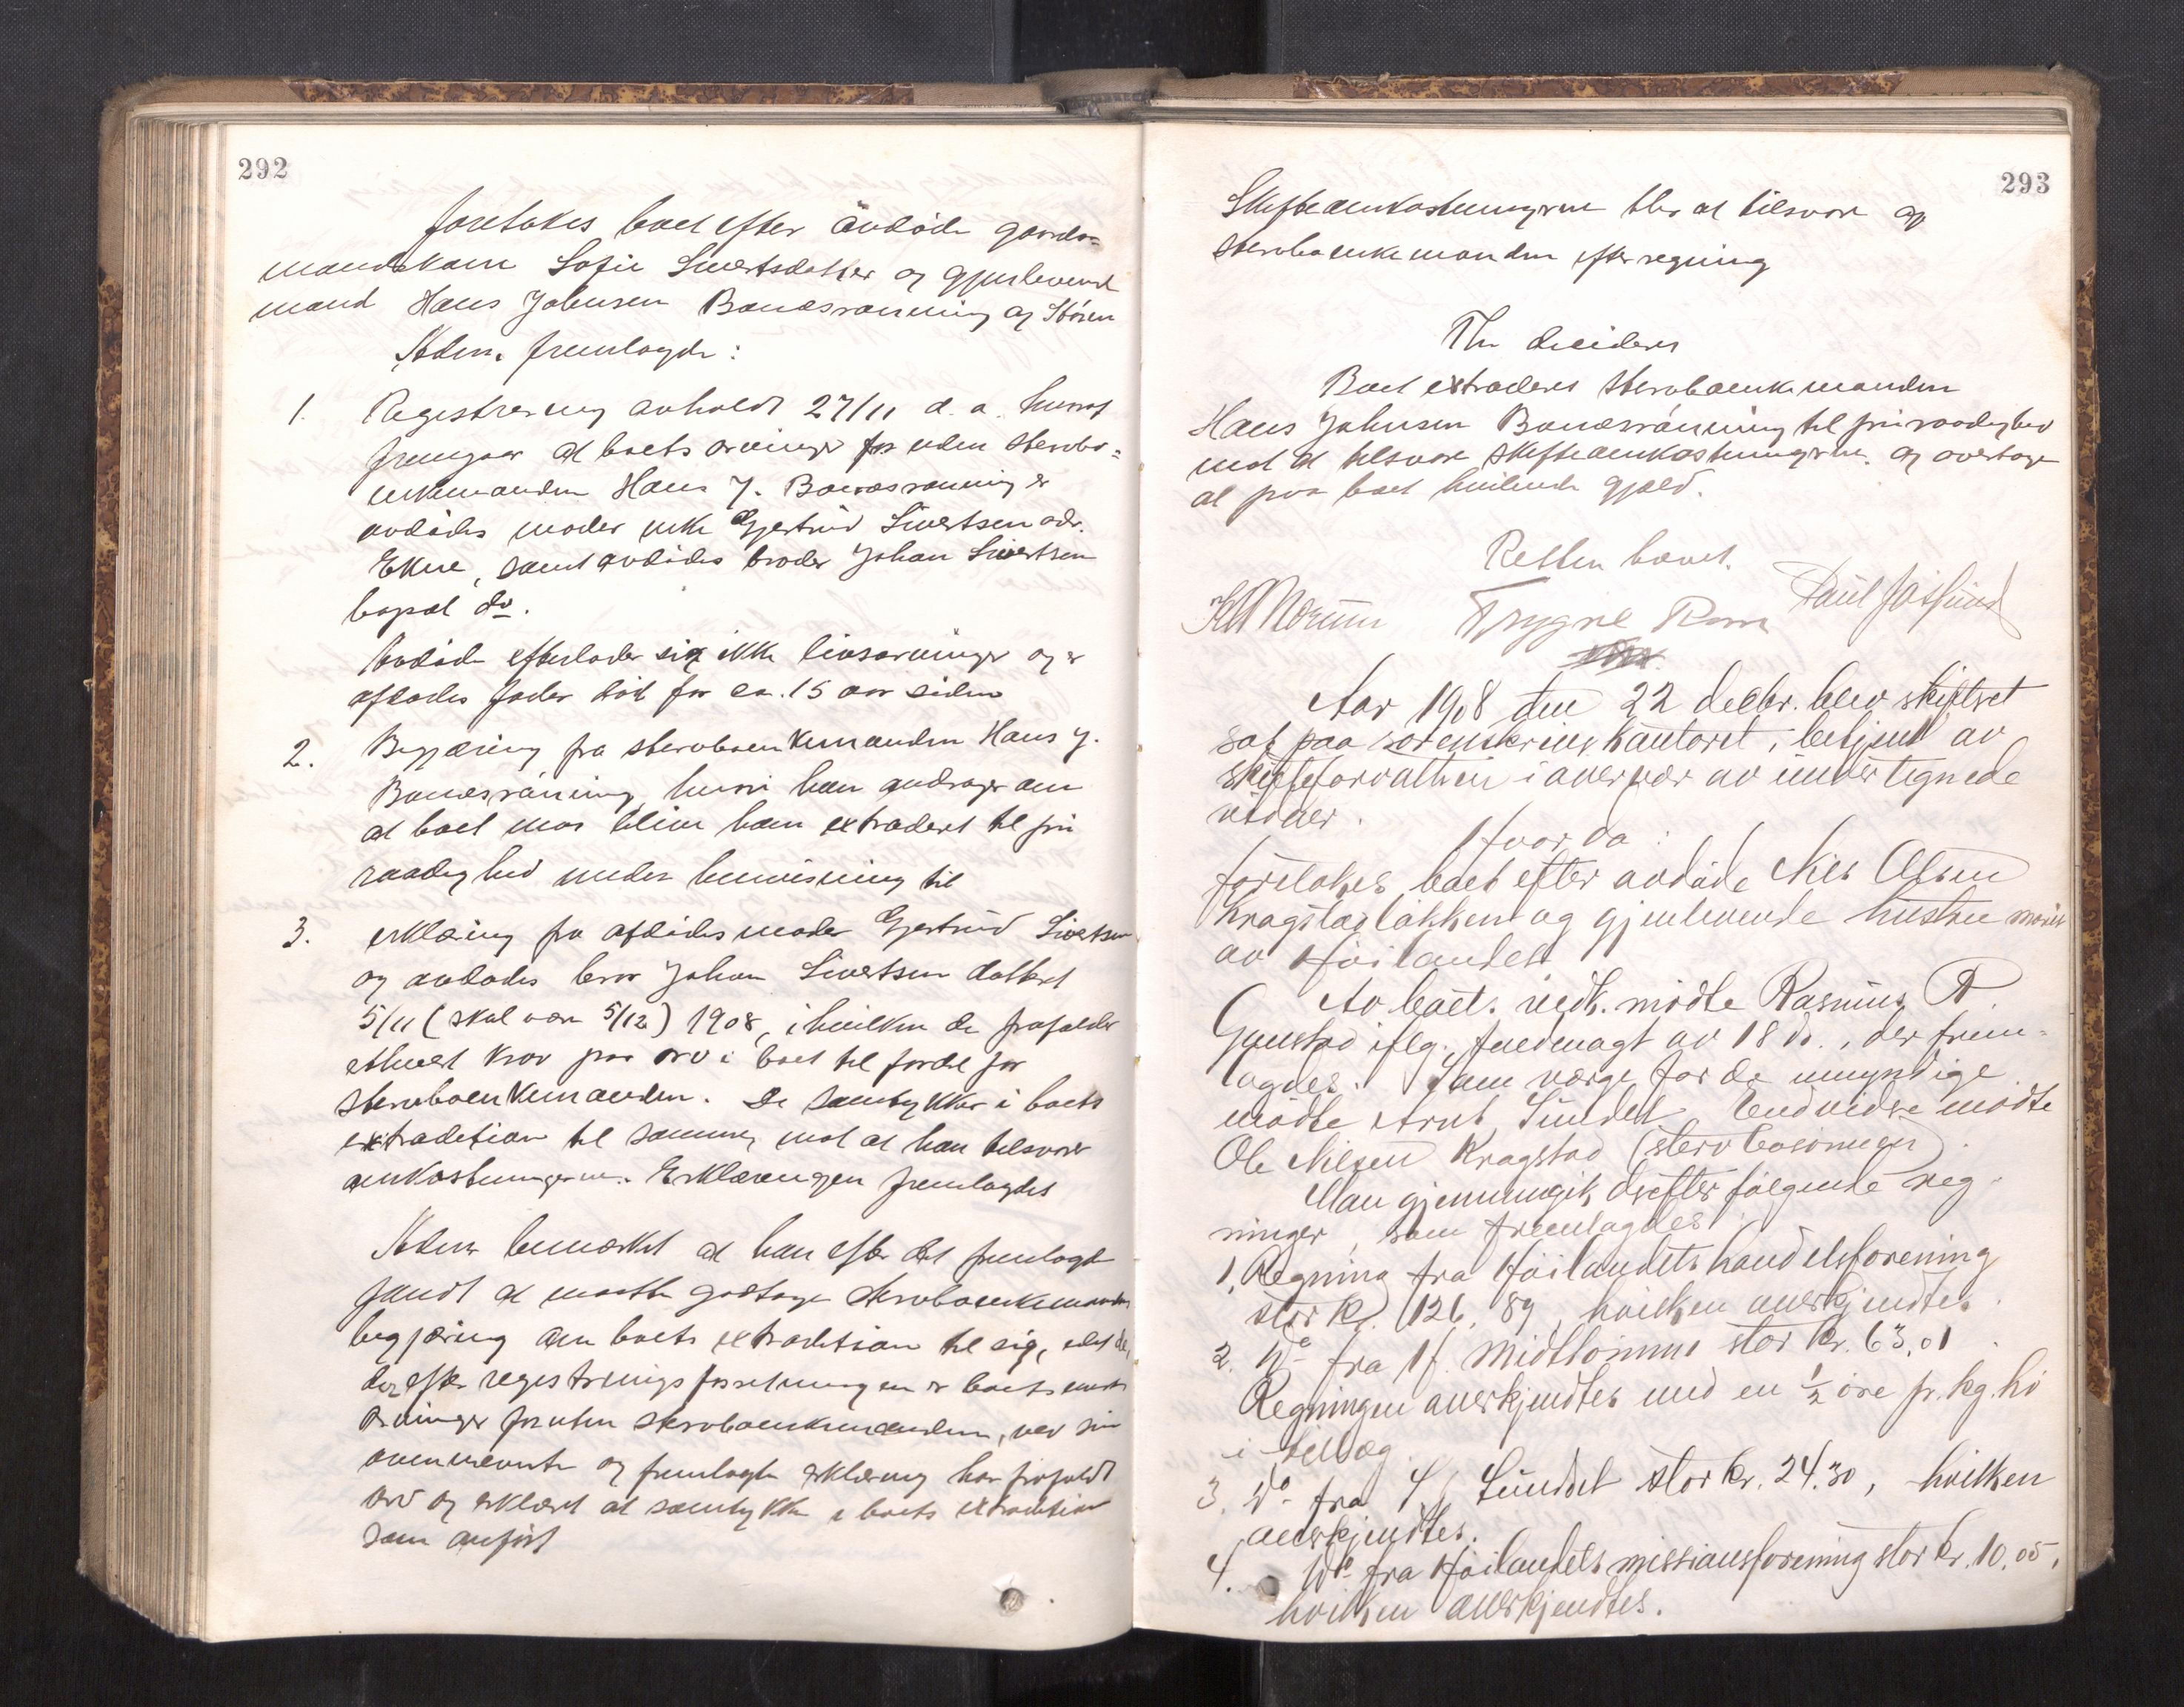 292
foretokes boet efter avdøde gaards=
mandskone Sofie Sivertsdatter og gjenlevende
mand Hans Johnsen Bonæsrønning av Stören
Adm. fremlagde:
1. Registrering avholdt 27/11 d. a. hvoraf
fremgaar at boets arvinger for uden stervbo=
enkemanden Hans J. Bonæsrønning er
avdødes moder enke Gjertrud Sivertsen adr.
Ekne, samt avdødes broder Johan Sivertsen
bopæl do.
Avdøde efterlader sig ikke livsarvinger og er
afdødes fader död for ca. 15 aar siden
2. Begjæring fra stervboenkemanden Hans J.
Bonæsrönning, hvori han andrager om
at boet maa blive ham extradert til fri
raadighed under henvisning til
3. erklæring fra afdödes moder Gjertrud Sivertsen
og avdødes bror Johan Sivertsen datert
5/11 (skal være 5/12) 1908, i hvilken de frafalder
ethvert krav paa arv i boet til fordel for
stervboenkemanden. De samtykker i boets
extradition til samme, mot at han tilsvarer
omkostningerne. Erklæringen fremlagdes
Adm. bemærket at han efter det fremlagte
fandt at maatte godtage stervboenkemandens
begjæring om boets extradition til sig, idet de,
der efter registreringsforretningen er boets eneste
arvinger foruten stervboenkemanden, ved sin
ovennævnte og fremlagte erklæring har frafaldt
arv og erklært at samtykke i boets extradition
som anført
293
Skifteomkostningerne blir at tilsvare av
stervboenkemanden efter regning
Thi decideres
Boet extraderes stervboenkemanden
Hans Johnsen Bonæsrönning til fri raadighed
mot at tilsvare skifteomkostningerne og overtage
al paa boet hvilende gjæld.
Retten hævet.
Trygve Rom Paul
Aar 1908 den 22 decbr. blev skifteret
sat paa sorenskriverkontoret, betjent av
skifteforvalteren i overvær av undertegnede
vidner.
Hvorda:
foretokes boet efter avdöde Nils Olsen
Kragstadløkken og gjenlevende hustru
av Höilandet
Av boets vedk. mödte Rasmus A.
Ganstad iflg. fuldmagt av 18 ds., der frem=
lagdes. Som værge for de umyndige
mödte Arnt Sundet. Endvidere mödte
Ole Nilsen Kragstad (stervbosönnen).
Man gjennemgik derefter fölgende reg-
ninger, som fremlagdes:
1. Regning fra Höilandets handelsforening
stor kr. 126,89, hvilken anerkjendtes.
2. Do fra H. stor kr. 63,01
Regningen anerkjendtes med en ½ öre pr. kg. hö
i tillæg
3. Do fra Sundet stor kr. 24.30, hvilken
anerkjendtes.
4. Do fra Höilandets missionsforening stor kr. 10.05,
hvilken anerkjendtes.